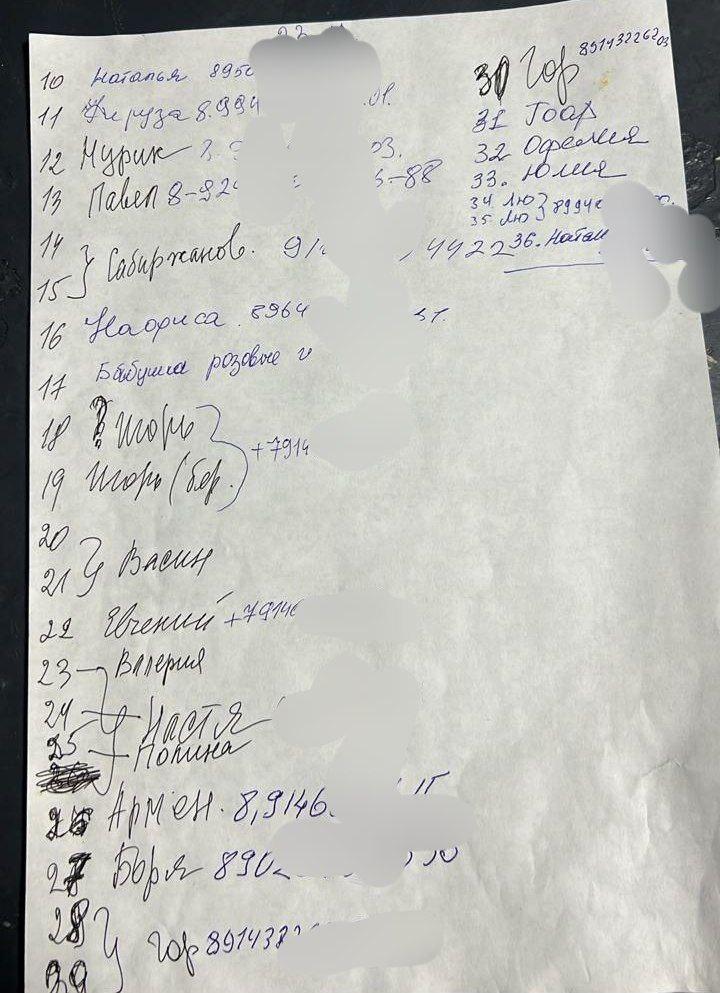 10 Наталья 8950
11 Фируза 8.994 01.
12 Нурик 03.
13 Павел 8-924 -88
14
15 } Сабиржанов. 91 4422
16 8964
17 Бабушка розовые
18 Игорь
19 Игорь (бор.) +7914
20
21 } Васин
22 Евгений +79146
23 Валерия
24 Настя
25 Полина
26 Армен. 8,9146.
27 Боря 890
28
39 } Гор 8914322
30 Гор 891432262 03
31 Гоар
32 Офелия
33. Юлия
34 Лю
35 Лю } 8994
36. Натал